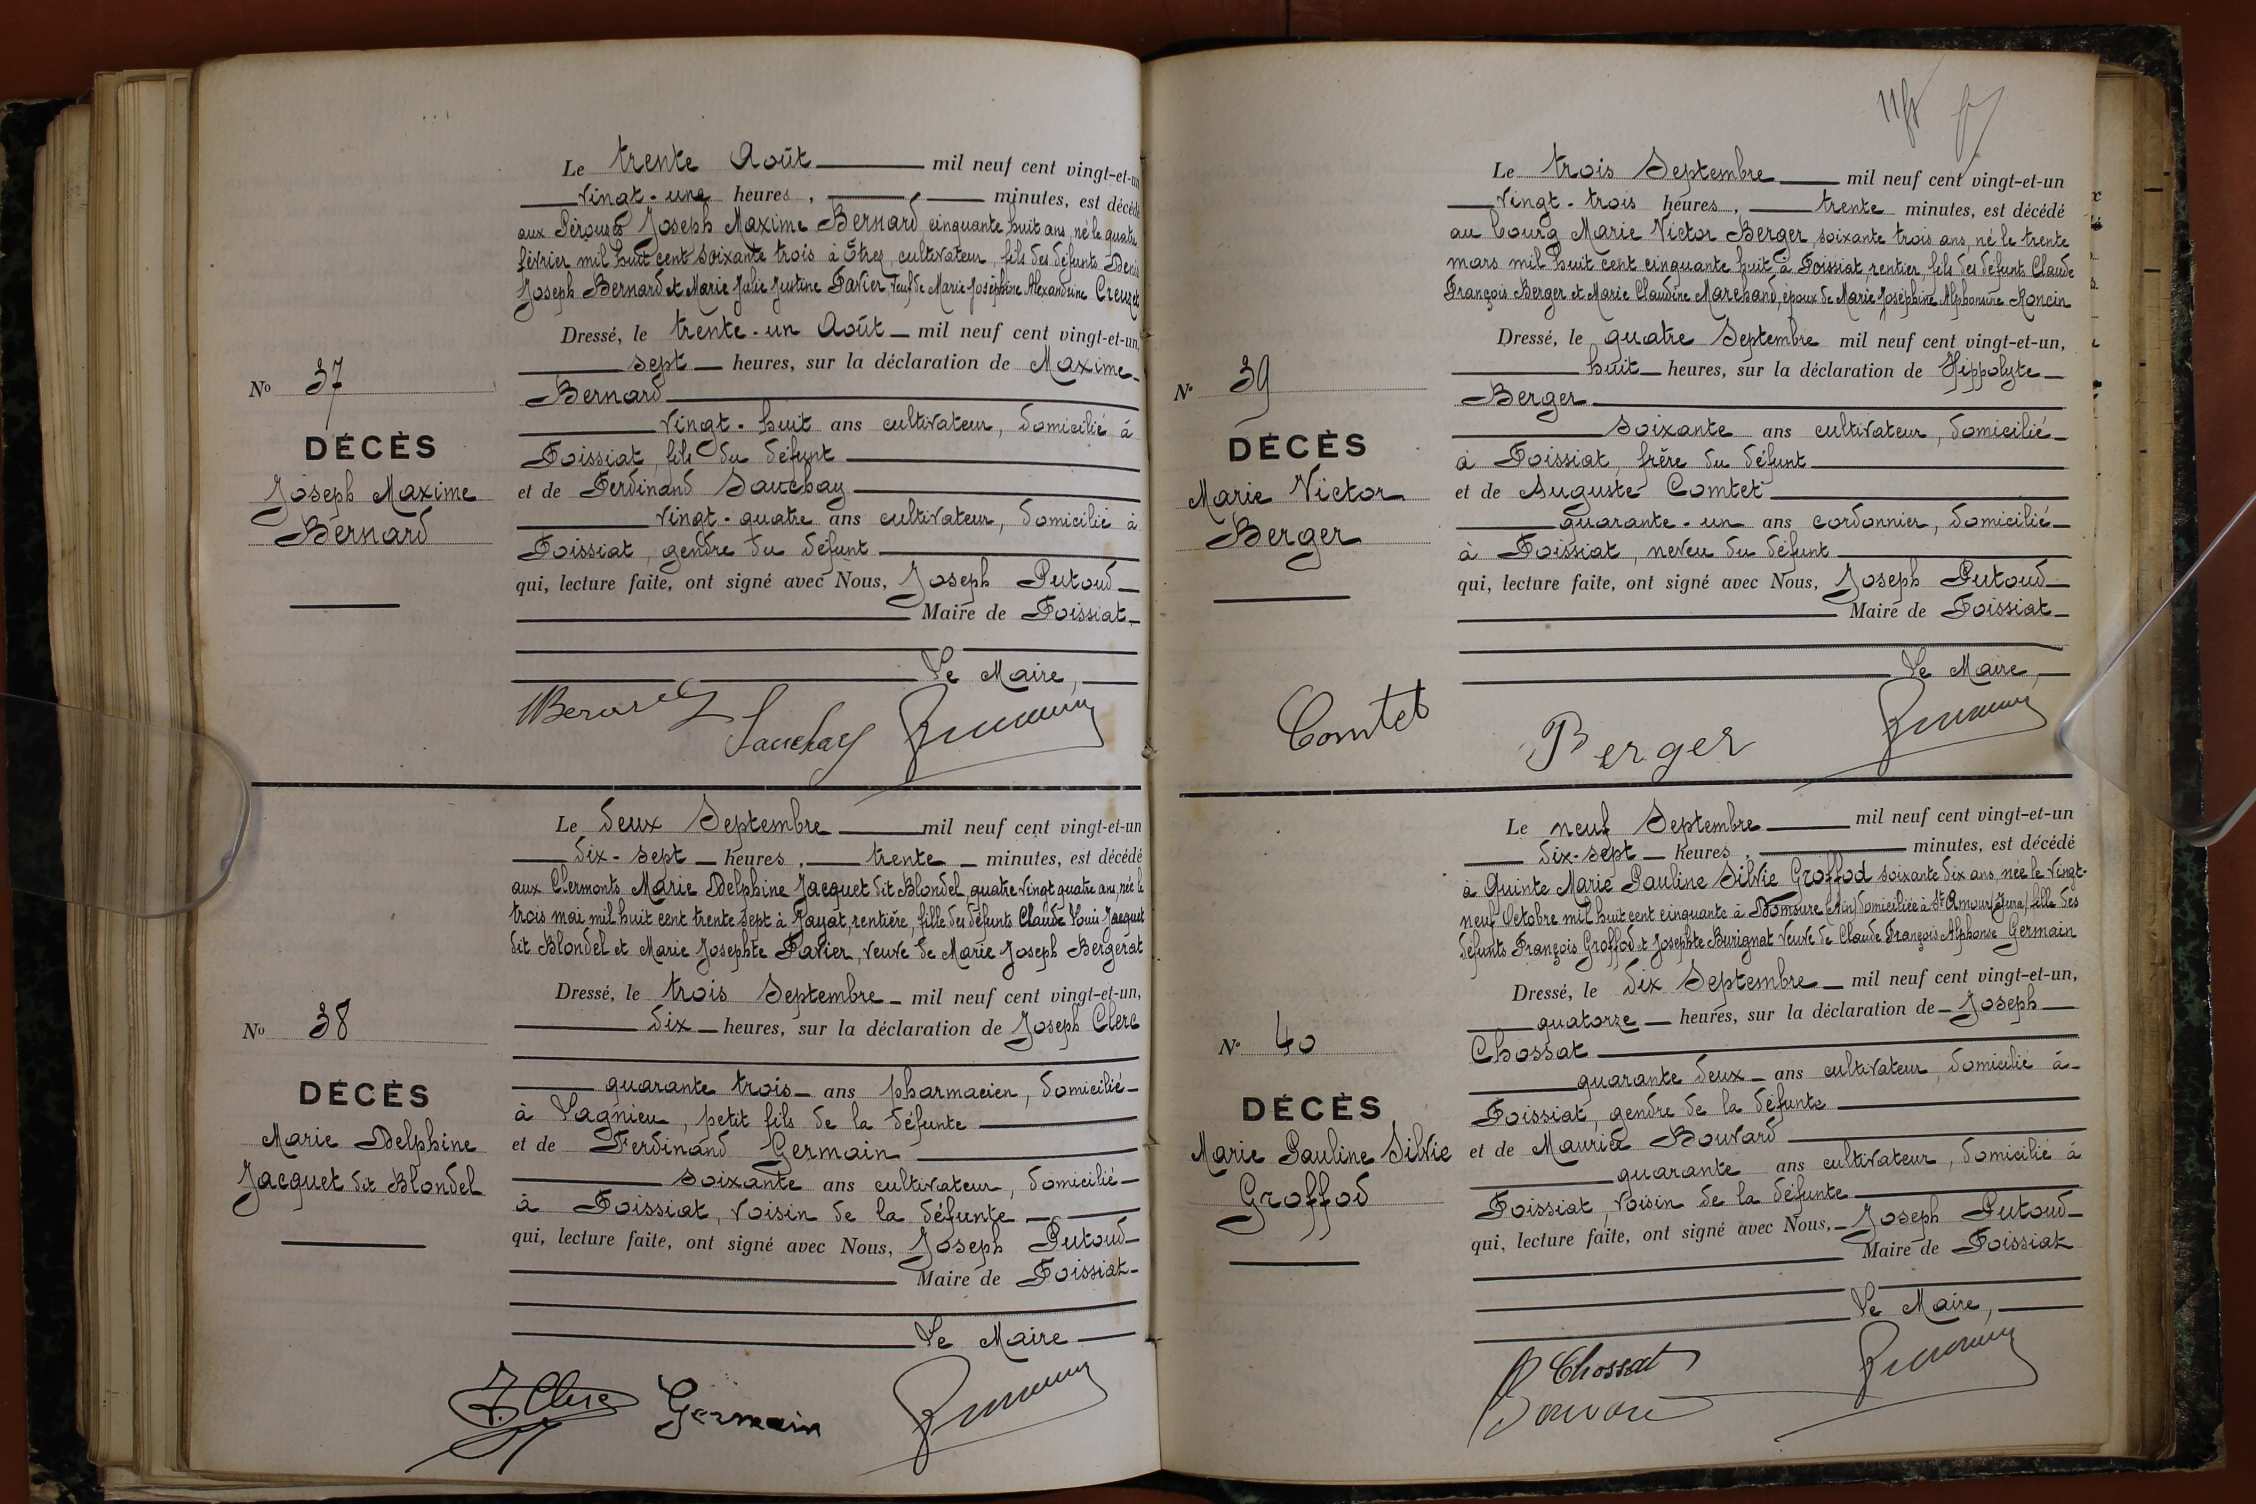 Le trente Août mil neuf cent vingt-et-un
vingt-une heures, minutes, est décédé
aux Pérouses Joseph Maxime Bernard cinquante huit ans, né le quatre
février mil huit cent soixante trois à Étrez, cultivateur, fils des défunts Denis
Joseph Bernard et Marie Julie Justine Favier, Veuf de Marie Joséphine Alexandrine Creuzet
Dressé, le trente-un Août mil neuf cent vingt-et-un,
sept heures, sur la déclaration de Maxime
Bernard
vingt-huit ans cultivateur, domicilié à
Foissiat, fils du défunt
et de Ferdinand Sauchay
vingt-quatre ans cultivateur, domicilié à
Foissiat, gendre du défunt
qui, lecture faite, ont signé avec Nous, Joseph Putoud
Maire de Foissiat
Le Maire,
No 37
DÉCÈS
Joseph Maxime
Bernard
MBernard Sauchay
Le deux Septembre mil neuf cent vingt-et-un
dix-sept heures, trente minutes, est décédé
aux Clermonts Marie Delphine Jacquet dit Blondel, quatre vingt quatre ans, née le
trois mai mil huit cent trente sept à Jayat, rentière, fille des défunts Claude Louis Jacquet
dit Blondel et Marie Josephte Favier, veuve de Marie Joseph Bergerat
Dressé, le trois Septembre mil neuf cent vingt-et-un,
dix heures, sur la déclaration de Joseph Clerc
quarante trois ans pharmacien, domicilié
à Lagnieu, petit fils de la défunte
et de Ferdinand Germain
soixante ans cultivateur, domicilié
à Foissiat, voisin de la défunte
qui, lecture faite, ont signé avec Nous, Joseph Putoud
Maire de Foissiat
Le Maire
No 38
DÉCÈS
Marie Delphine
Jacquet dit Blondel
J. Clerc Germain
Le trois Septembre mil neuf cent vingt-et-un
vingt-trois heures, trente minutes, est décédé
au bourg Marie Victor Berger, soixante trois ans, né le trente
mars mil huit cent cinquante huit, à Foissiat, rentier, fils des défunts Claude
François Berger et Marie Claudine Marchand, époux de Marie Joséphine Alphonsine Roncin
Dressé, le quatre Septembre mil neuf cent vingt-et-un,
huit heures, sur la déclaration de Hippolyte
Berger
soixante ans cultivateur, domicilié
à Foissiat, frère du défunt
et de Auguste Comtet
quarante-un ans cordonnier, domicilié
à Foissiat, neveu du défunt
qui, lecture faite, ont signé avec Nous, Joseph Putoud
Maire de Foissiat
Le Maire,
No 39
DÉCÈS
Marie Victor
Berger
Comtet Berger
Le neuf Septembre mil neuf cent vingt-et-un
dix-sept heures, minutes, est décédé
à Quinte Marie Pauline Silvie Groffod soixante dix ans, née le vingt-
neuf Octobre mil huit cent cinquante à Domsure (Ain) domiciliée à St Amour (Jura) fille des
défunts François Groffod et Josephte Burignat Veuve de Claude François Alphonse Germain
Dressé, le dix Septembre mil neuf cent vingt-et-un,
quatorze heures, sur la déclaration de Joseph
Chossat
quarante deux ans cultivateur, domicilié à
Foissiat, gendre de la défunte
et de Maurice Bouvard
quarante ans cultivateur, domicilié à
Foissiat, voisin de la défunte
qui, lecture faite, ont signé avec Nous, Joseph Putoud
Maire de Foissiat
Le Maire,
No 40
DÉCÈS
Marie Pauline Silvie
Groffod
Chossat
Bouvard